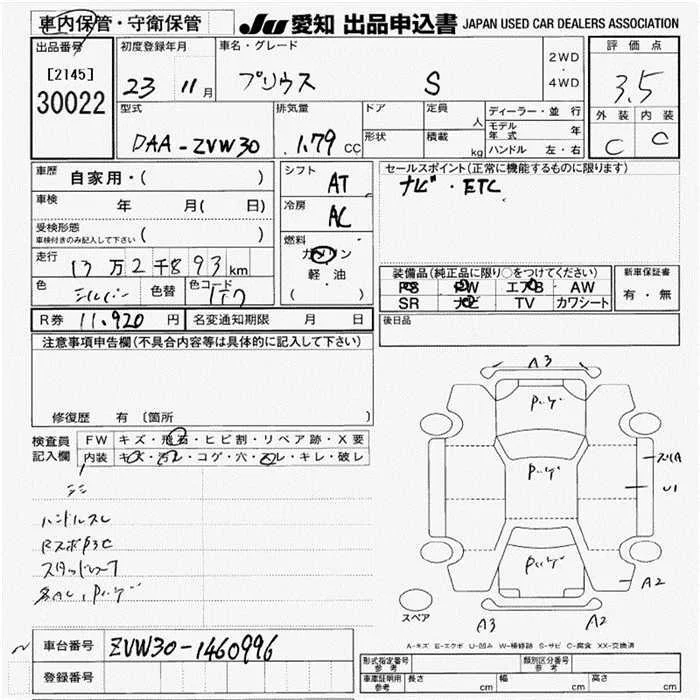 車内保管・守衛保管
JU 愛知 出品申込書 JAPAN USED CAR DEALERS ASSOCIATION
出品番号
[2145]
30022
初度登録年月
23 11月
車名・グレード
プリウス S
2WD
・
4WD
評価点
3.5
外装 内装
C C
型式
DAA-ZVW30
排気量
1.79 CC
ドア
形状
定員 人
積載 kg
ディーラー・並行
モデル年式 年
ハンドル 左・右
車歴 自家用・( )
車検 年 月( 日)
受検形態
車検付きのみ記入して下さい ( )
走行 13万2千893km
色 シルバー 色替 色コード 1F7
シフト AT
冷房 AC
燃料
ガソリン
軽・油
( )
セールスポイント(正常に機能するものに限ります)
ナビ・ETC
装備品(純正品に限り○をつけてください)
PS PW エアB AW
SR ナビ TV カワシート
新車保証書
有・無
R券 11,920 円 名変通知期限 月 日
後日品
注意事項申告欄(不具合内容等は具体的に記入して下さい)
修復歴 有 〔箇所
検査員記入欄
FW キズ・飛石・ヒビ割・リペア跡・X要
内装 キズ・汚レ・コゲ・穴・スレ・キレ・破レ
ハンドルスレ
RスポP3C
スタッドレス
A3
スリA
U1
A2
A3
A2
スペア
A-キズ E-エクボ U-凹み W-補修跡 S-サビ C-腐食 XX-交換済
車台番号 ZVW30-1460996
登録番号
形式指定番号 参考
類別区分番号
車庫証明用 参考 長さ cm 幅 cm 高さ cm